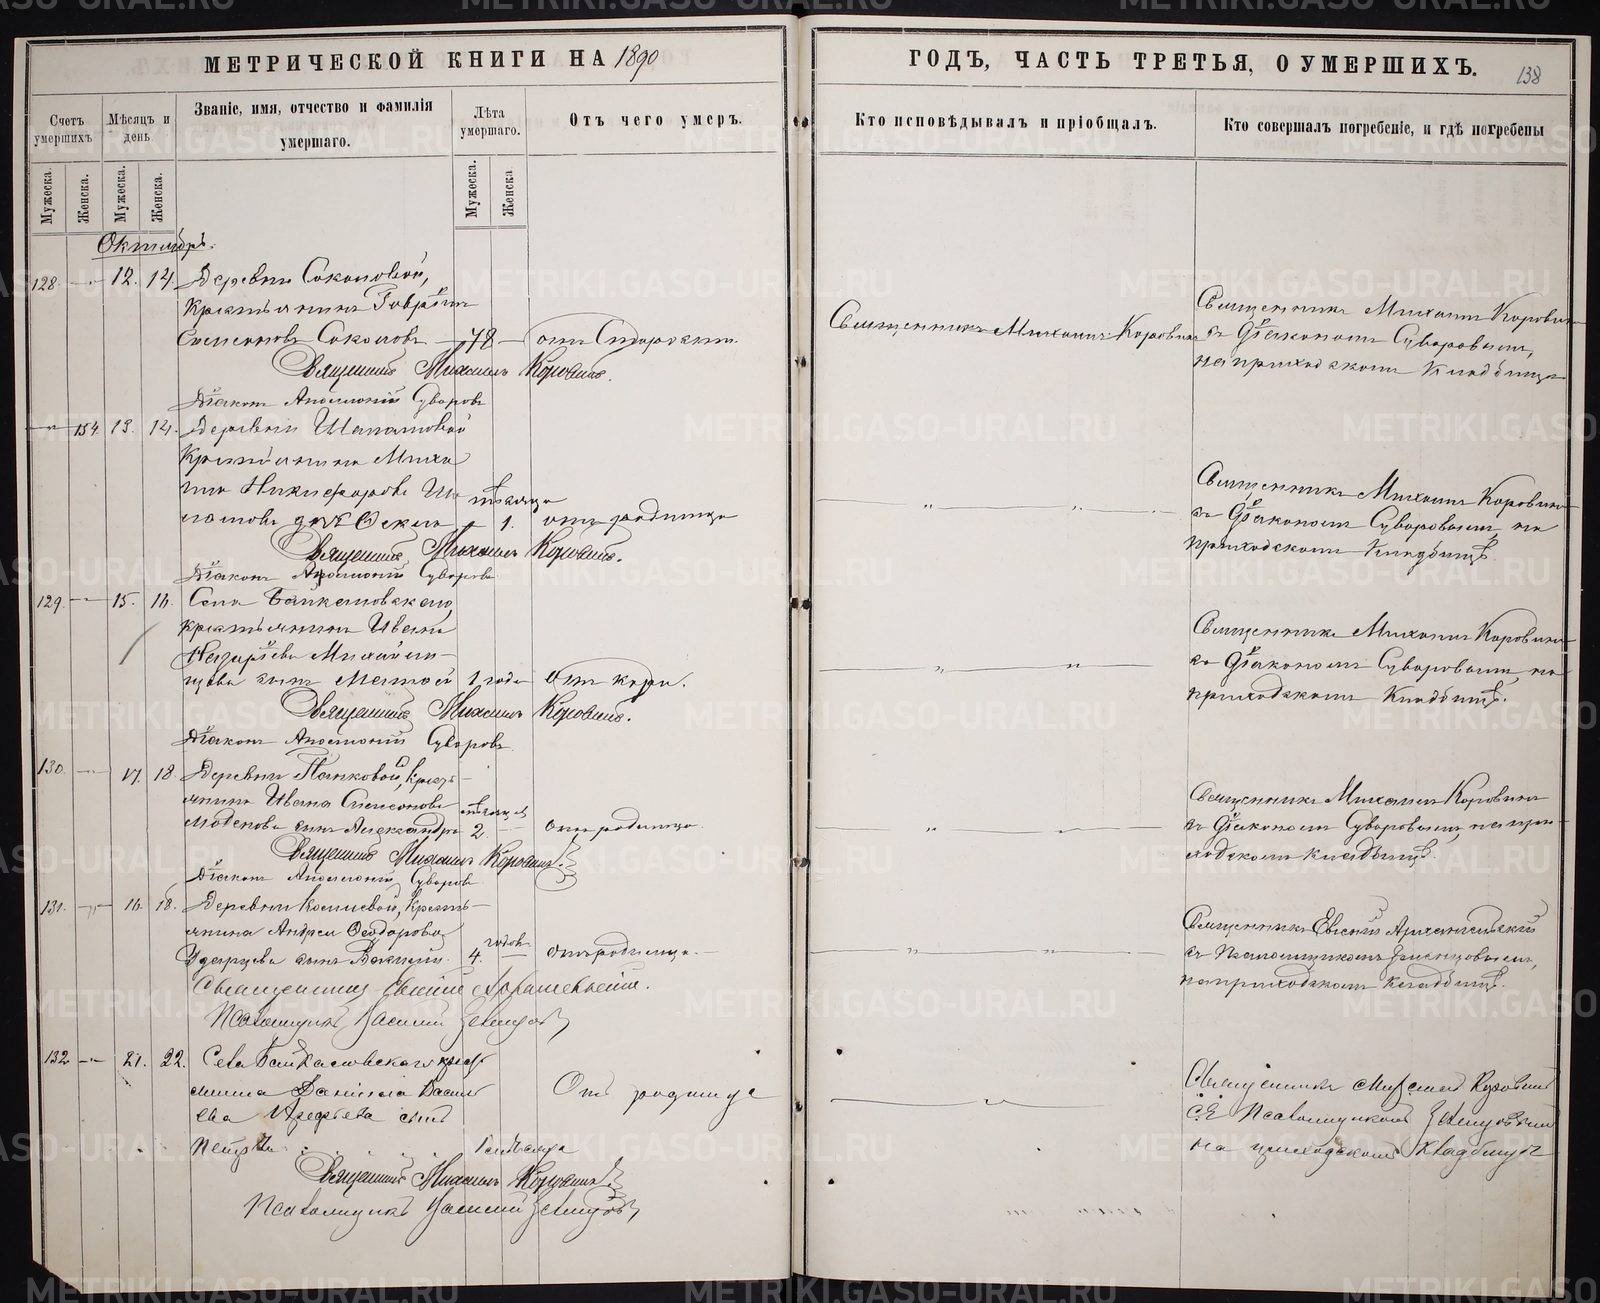 МЕТРИЧЕСКОЙ КНИГИ НА 1890
Счетъ умершихъ
Мѣсяцъ и день
Званіе, имя, отчество и фамилія умершаго.
Лѣта умершаго.
Отъ чего умеръ.
Мужеска.
Женска.
Мужеска.
Женска.
Мужеска.
Женска
Октябрь.
128. 12. 14. Деревни Соколовой,
крестьянинъ Гавріилъ
Симеоновъ Соколовъ 78 отъ Старости.
Священникъ Михаилъ Коровинъ.
Діаконъ Аполлоній Суворовъ
154 13. 14. Деревни Шапатовой
крестьянина Миха
ила Никифорова Ша мѣсяца
патова дочь 1. отъ родимца
Священникъ Михаилъ Коровинъ.
Діаконъ Аполлоній Суворовъ
129. 15. 16. Села Байкаловскаго,
крестьянина Ивана
Назаріева Михайли-
щева сынъ Матѳей 1 года отъ кори.
Священникъ Михаилъ Коровинъ.
Діаконъ Аполлоній Суворовъ.
130. 17. 18. Деревни Панковой, кресть-
янина Ивана Симеонова мѣсяцев
сынъ Александръ 2. отъ родимца.
Священникъ Михаилъ Коровинъ.
Діаконъ Аполлоній Суворовъ
131. 16. 18. Деревни кресть-
янина Андрея Ѳеодорова годовъ
сынъ 4. отъ родимца.
Священникъ Евгеній Архангельскій.
Псаломщикъ Василій
132 21. 22. Села Байкаловскаго крест
янина Даніила Васил
ева сынъ Отъ родимца
Петръ
Священникъ Михаилъ Коровинъ.
Псаломщикъ Василій
ГОДЪ, ЧАСТЬ ТРЕТЬЯ, О УМЕРШИХЪ. 138
Кто исповѣдывалъ и пріобщалъ.
Кто совершалъ погребеніе, и гдѣ погребены
Священникъ Михаилъ Коровинъ
Священникъ Михаилъ Коровинъ
съ Діакономъ Суворовымъ,
на приходскомъ кладбище
Священникъ Михаилъ Коровинъ
съ Діакономъ Суворовымъ, на
приходскомъ кладбищѣ.
Священникъ Михаилъ Коровинъ
съ Діакономъ Суворовымъ, на
приходскомъ кладбищѣ.
Священникъ Михаилъ Коровинъ
съ Діакономъ Суворовымъ, на при-
ходскомъ кладбищѣ.
Священникъ Евгеній Архангельскій
съ Псаломщикомъ
на приходскомъ кладбищѣ.
Священникъ Михаилъ Коровинъ
съ Псаломщикомъ
на приходскомъ кладбищѣ
METRIKI.GASO-URAL.RU